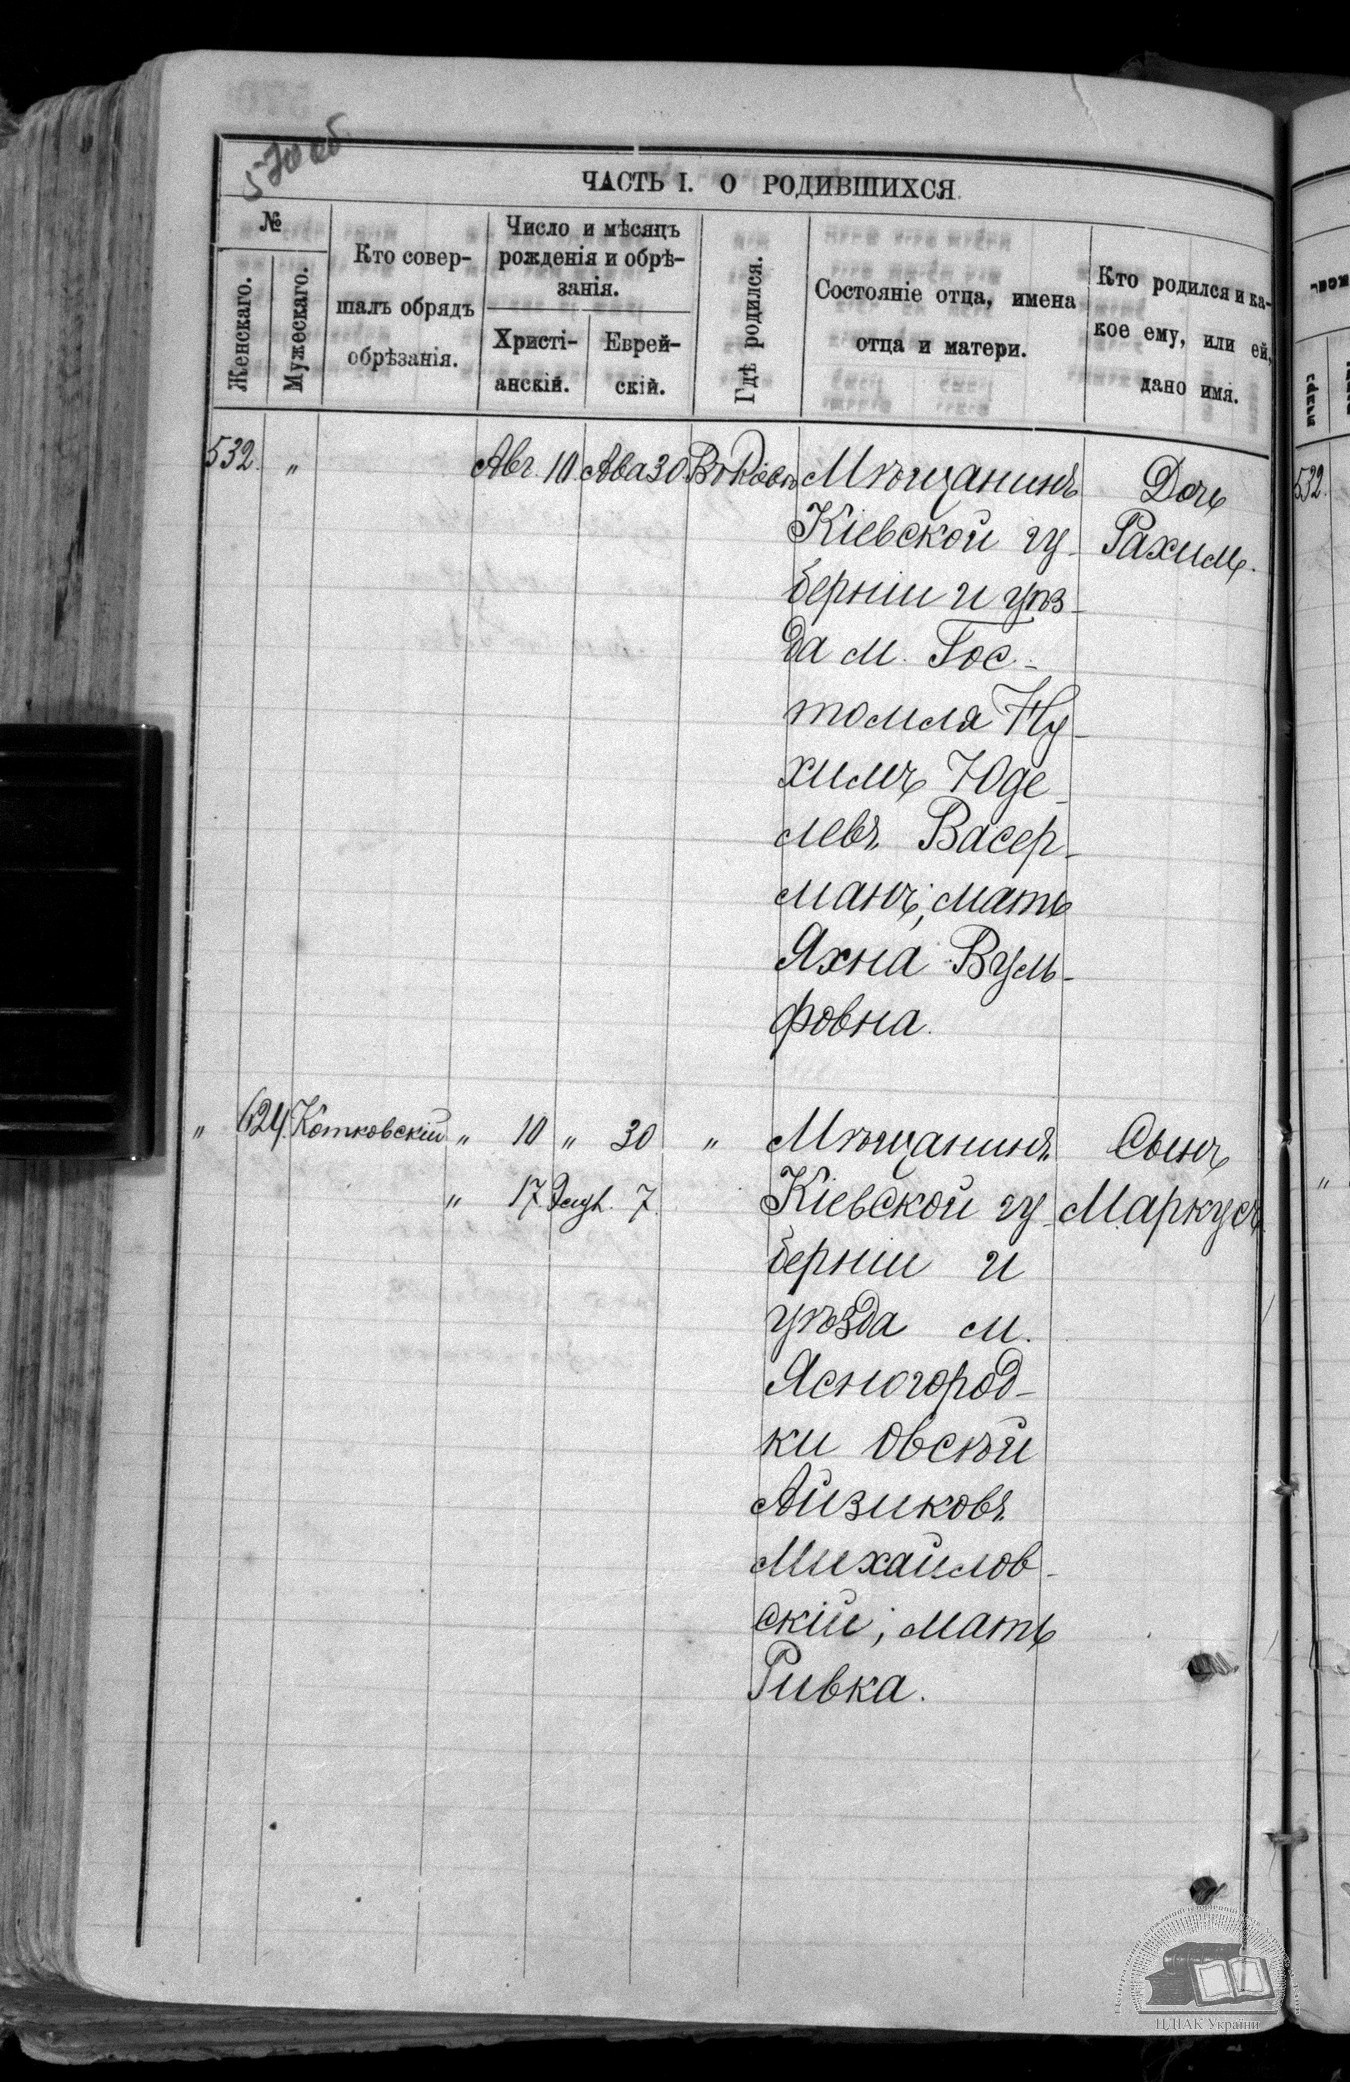 570 об
ЧАСТЬ I. О РОДИВШИХСЯ.
№
Женскаго.
Мужескаго.
Кто совер-
шалъ обрядъ
обрѣзанія.
Число и мѣсяцъ
рожденія и обрѣ-
занія.
Христі-
анскій.
Еврей-
скій.
Гдѣ родился.
Состояніе отца, имена
отца и матери.
Кто родился и ка-
кое ему, или ей,
дано имя.
532. " Авг. 10. Ава 30. Въ Кіевѣ Мѣщанинъ Дочь
Кіевской гу- Рахиль.
берніи и уѣз-
да м. Гос-
томля Ну-
химъ Юде-
левъ Васер-
манъ; мать
Яхна Вуль-
фовна.
" 624. Котковскій " 10 " 30 " Мѣщанинъ Сынъ
" 17 7. Кіевской гу- Маркусъ.
берніи и
уѣзда м.
Ясногород-
ки Овсѣй
Айзиковъ
Михайлов-
скій; мать
Ривка.
532.
"
ЦДІАК України